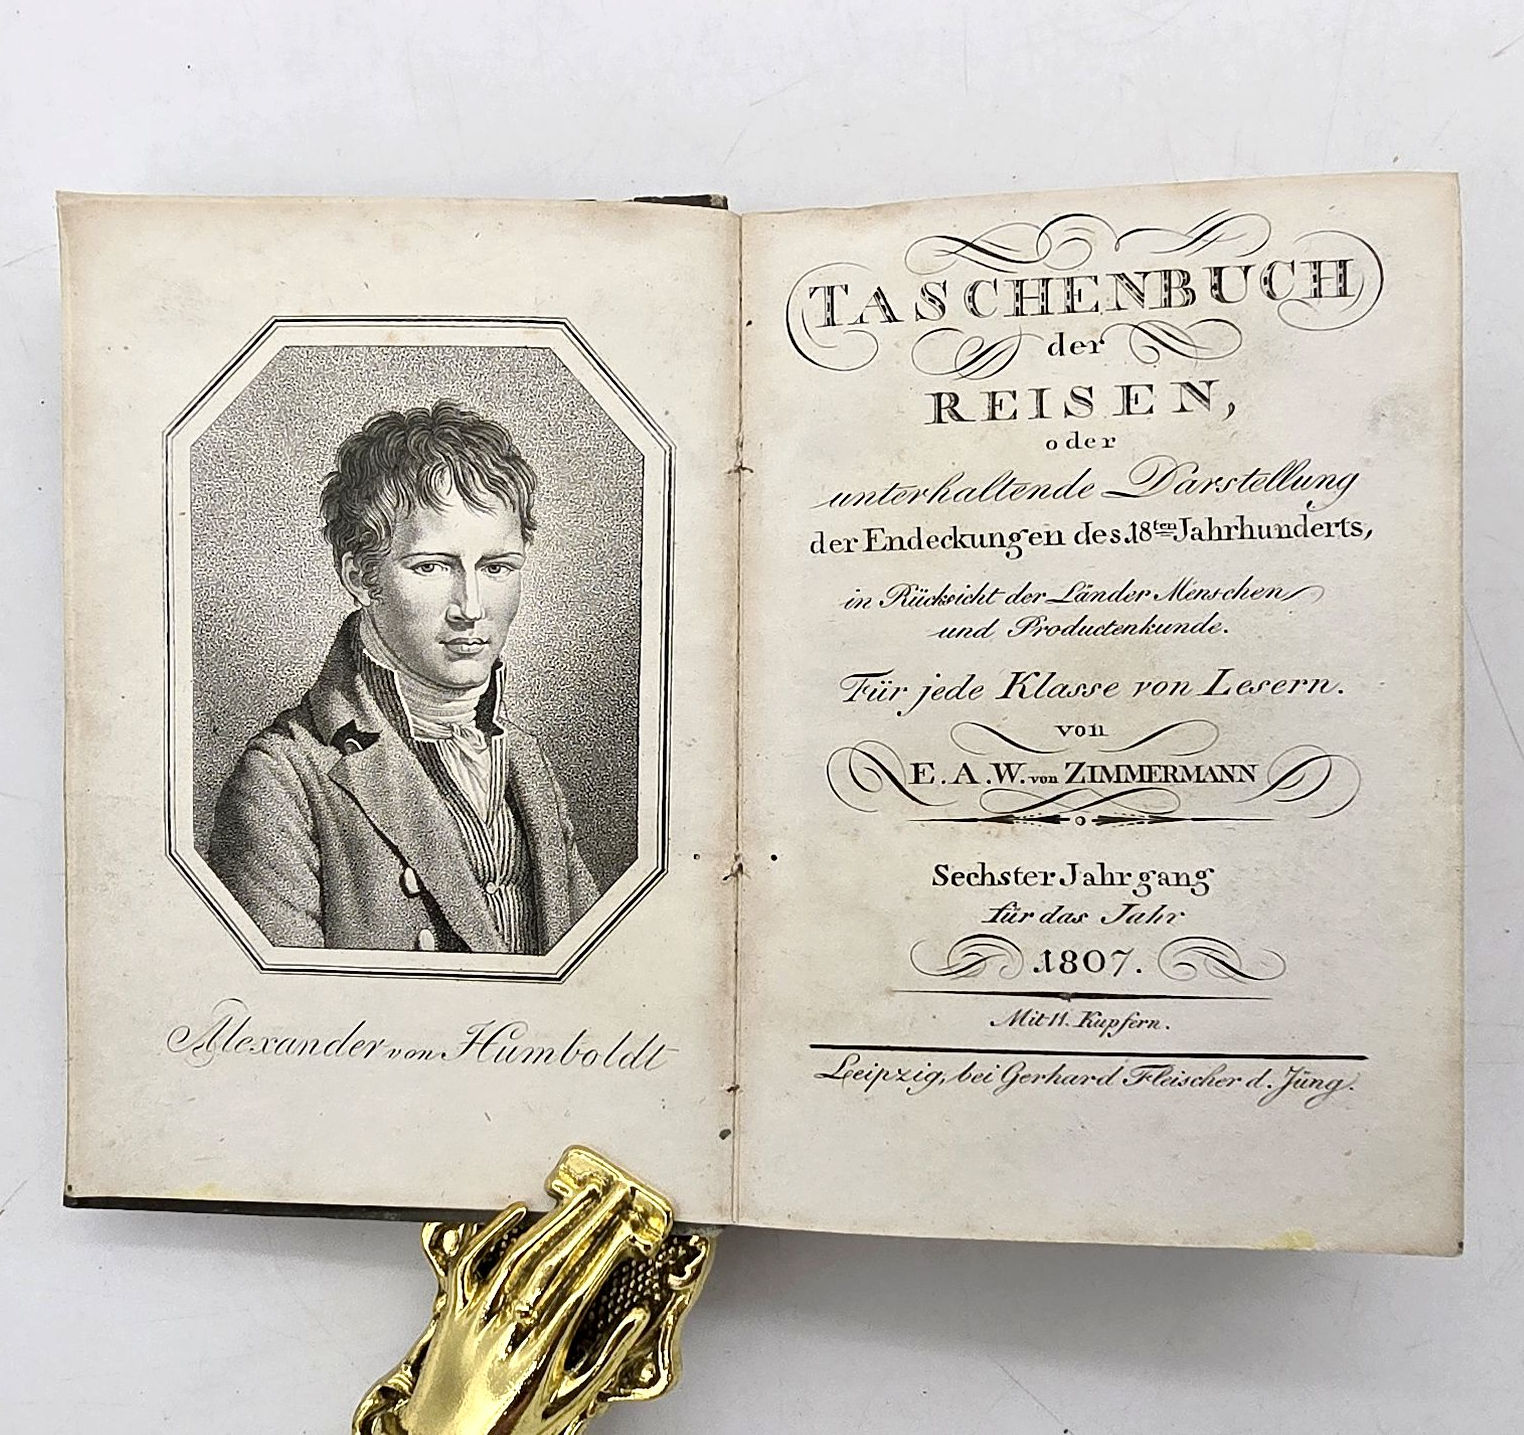 Alexander von Humboldt
TASCHENBUCH
der
REISEN,
oder
unterhaltende Darstellung
der Endeckungen des 18ten Jahrhunderts,
in Rücksicht der Länder Menschen
und Productenkunde.
Für jede Klasse von Lesern.
von
E. A. W. von ZIMMERMANN
Sechster Jahrgang
für das Jahr
1807.
Mit 11. Kupfern.
Leipzig, bei Gerhard Fleischer d. Jüng.